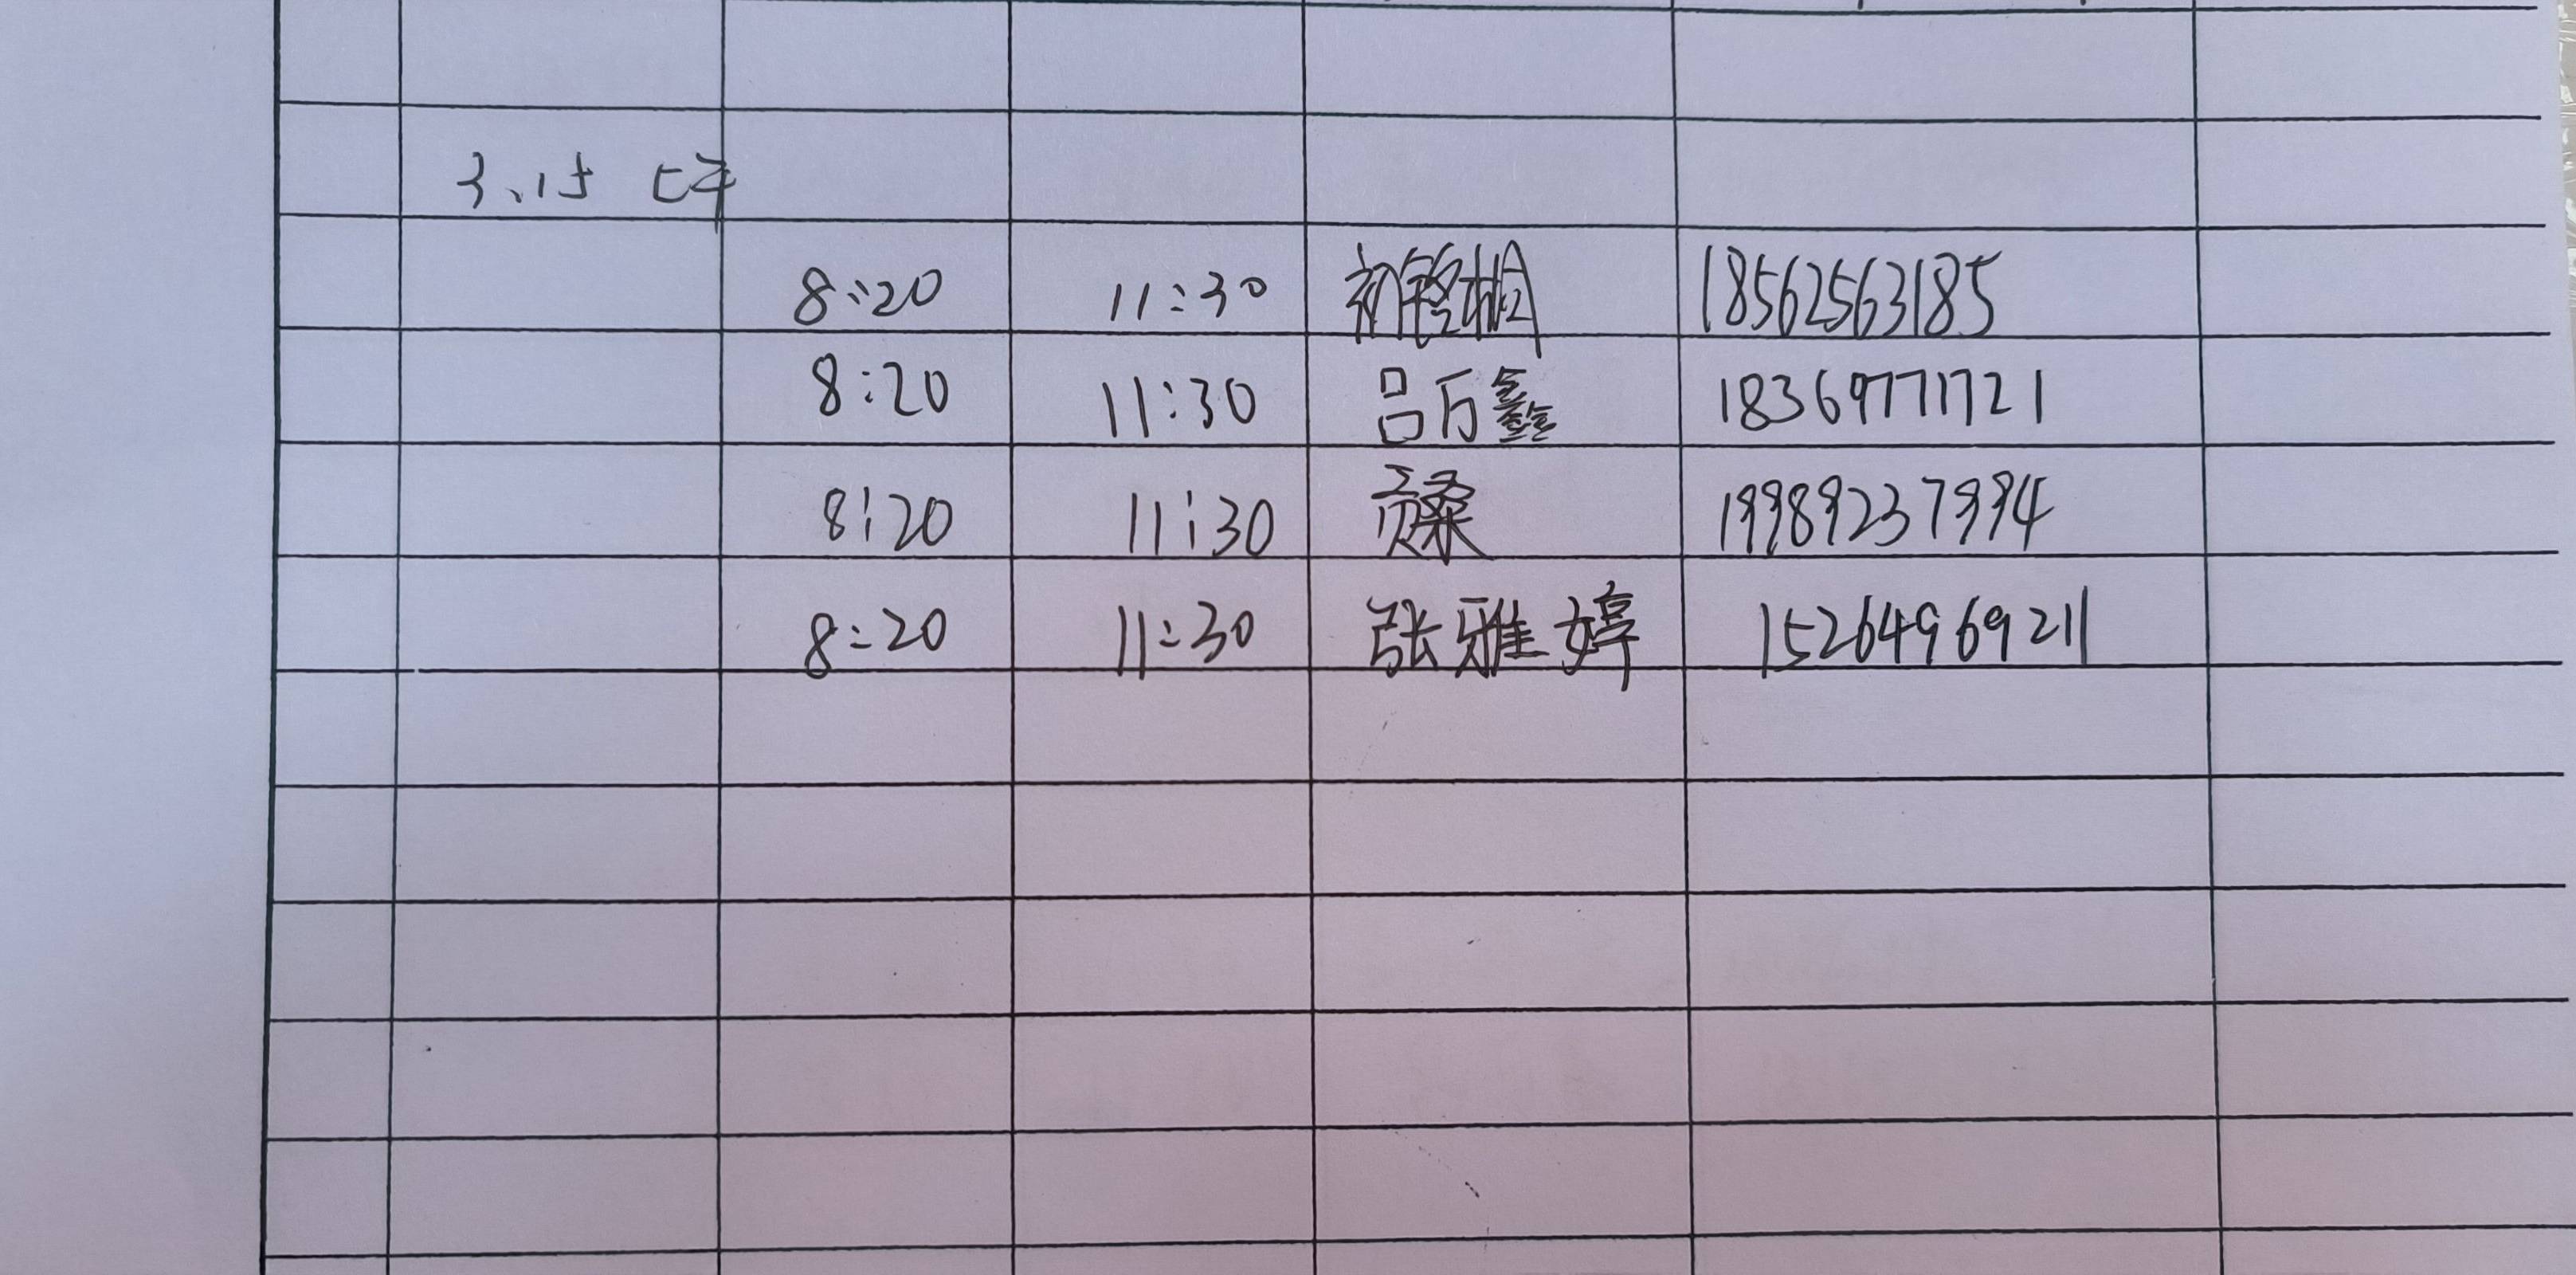 3.15 上午
8:20 11:30 初 18562563185
8:20 11:30 吕万鑫 18369771721
8:20 11:30 贡桑 19989237994
8:20 11:30 张雅婷 15264969211